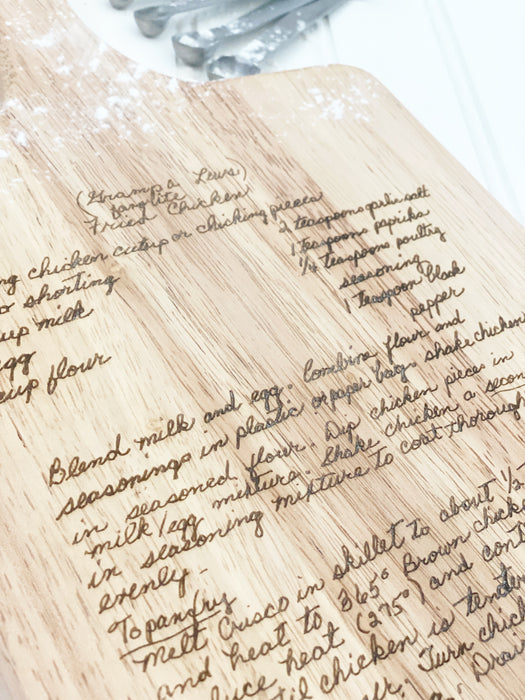 (Grampa Lew's)
favorite
Fried Chicken
chicken cutup or chicking pieces
shorting
milk
egg
cup flour
2 teaspoons garlic salt
1 teaspoons paprika
1/4 teaspoons poultry
seasoning
1 teaspoon black
pepper
Blend milk and egg. Combine flour and
seasonings in plastic or paper bag. shake chicken
in seasoned flour. Dip chicken pieces in
milk/egg mixture. Shake chicken a secon
in seasoning mixture to coat thorough
evenly.
To panfry
melt Crisco in skillet to about 1/2
and heat to 365° Brown chick
uce heat (275°) and cont
til chicken is tender
Turn chick
Drain